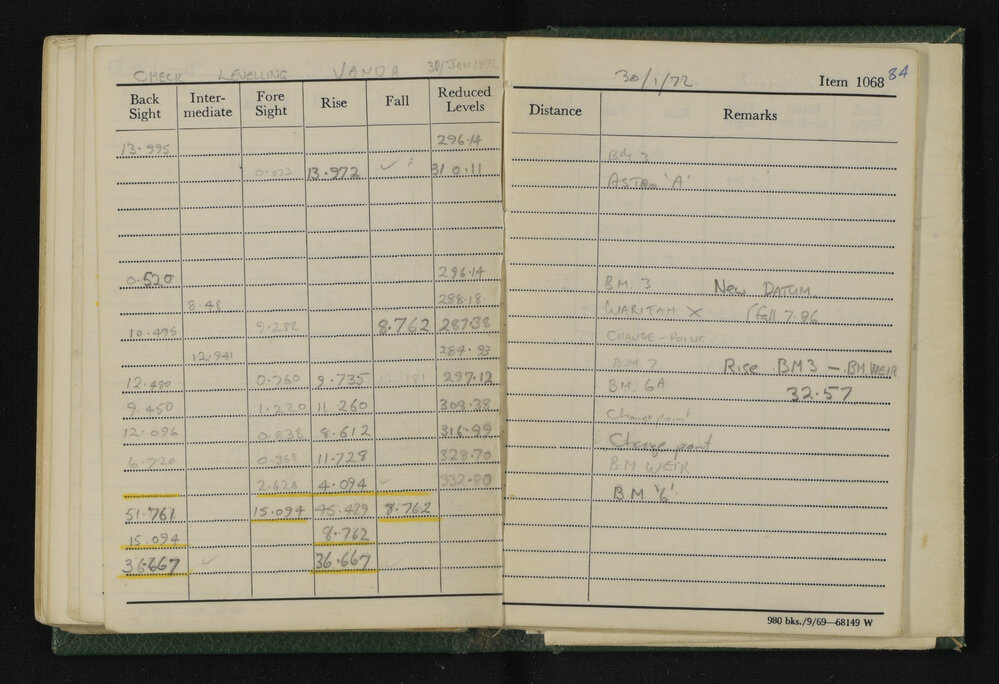 CHECK LEVELLING VANDA 30/JAN 1972
Back Sight Inter-mediate Fore Sight Rise Fall Reduced Levels
13.995 296.14
0.023 13.972 ✓ 310.11
0.520 296.14
8.48 288.18
10.495 9.282 8.762 287.38
12.941 284.93
12.480 0.760 9.735 297.12
9.450 1.220 11.260 308.38
12.096 0.838 8.612 316.99
6.720 0.368 11.728 328.70
2.626 4.094 332.80
51.761 15.094 45.429 8.762
15.094 8.762
36.667 ✓ 36.667
30/1/72 Item 1068 84
Distance Remarks
BM 3
ASTRO 'A'
BM. 3 New DATUM
WARITAM X (fall 7.96
CHANGE-POINT
BM 7 Rise BM3 – BM WEIR
BM 6A 32.57
Change point
Change point
BM WEIR
BM '6'
980 bks./9/69—68149 W